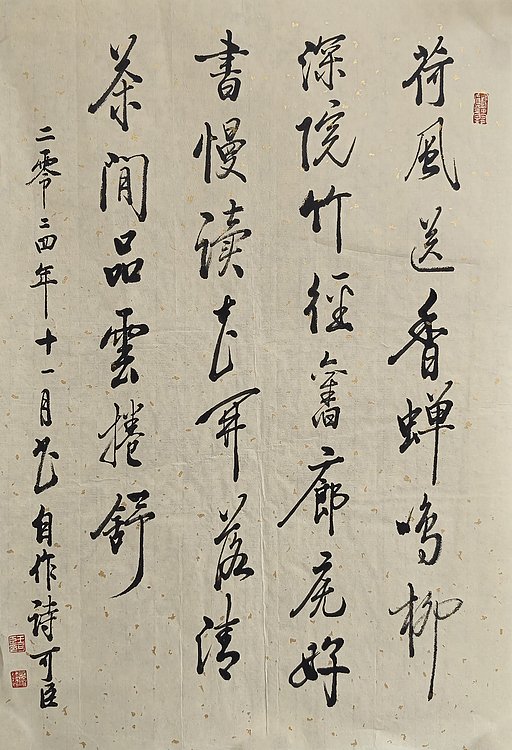 荷風送香蝉鸣柳
深院竹徑舊廊庑好
書慢读花開落清
茶閒品雲捲舒
二零二四年十一月书自作詩可臣